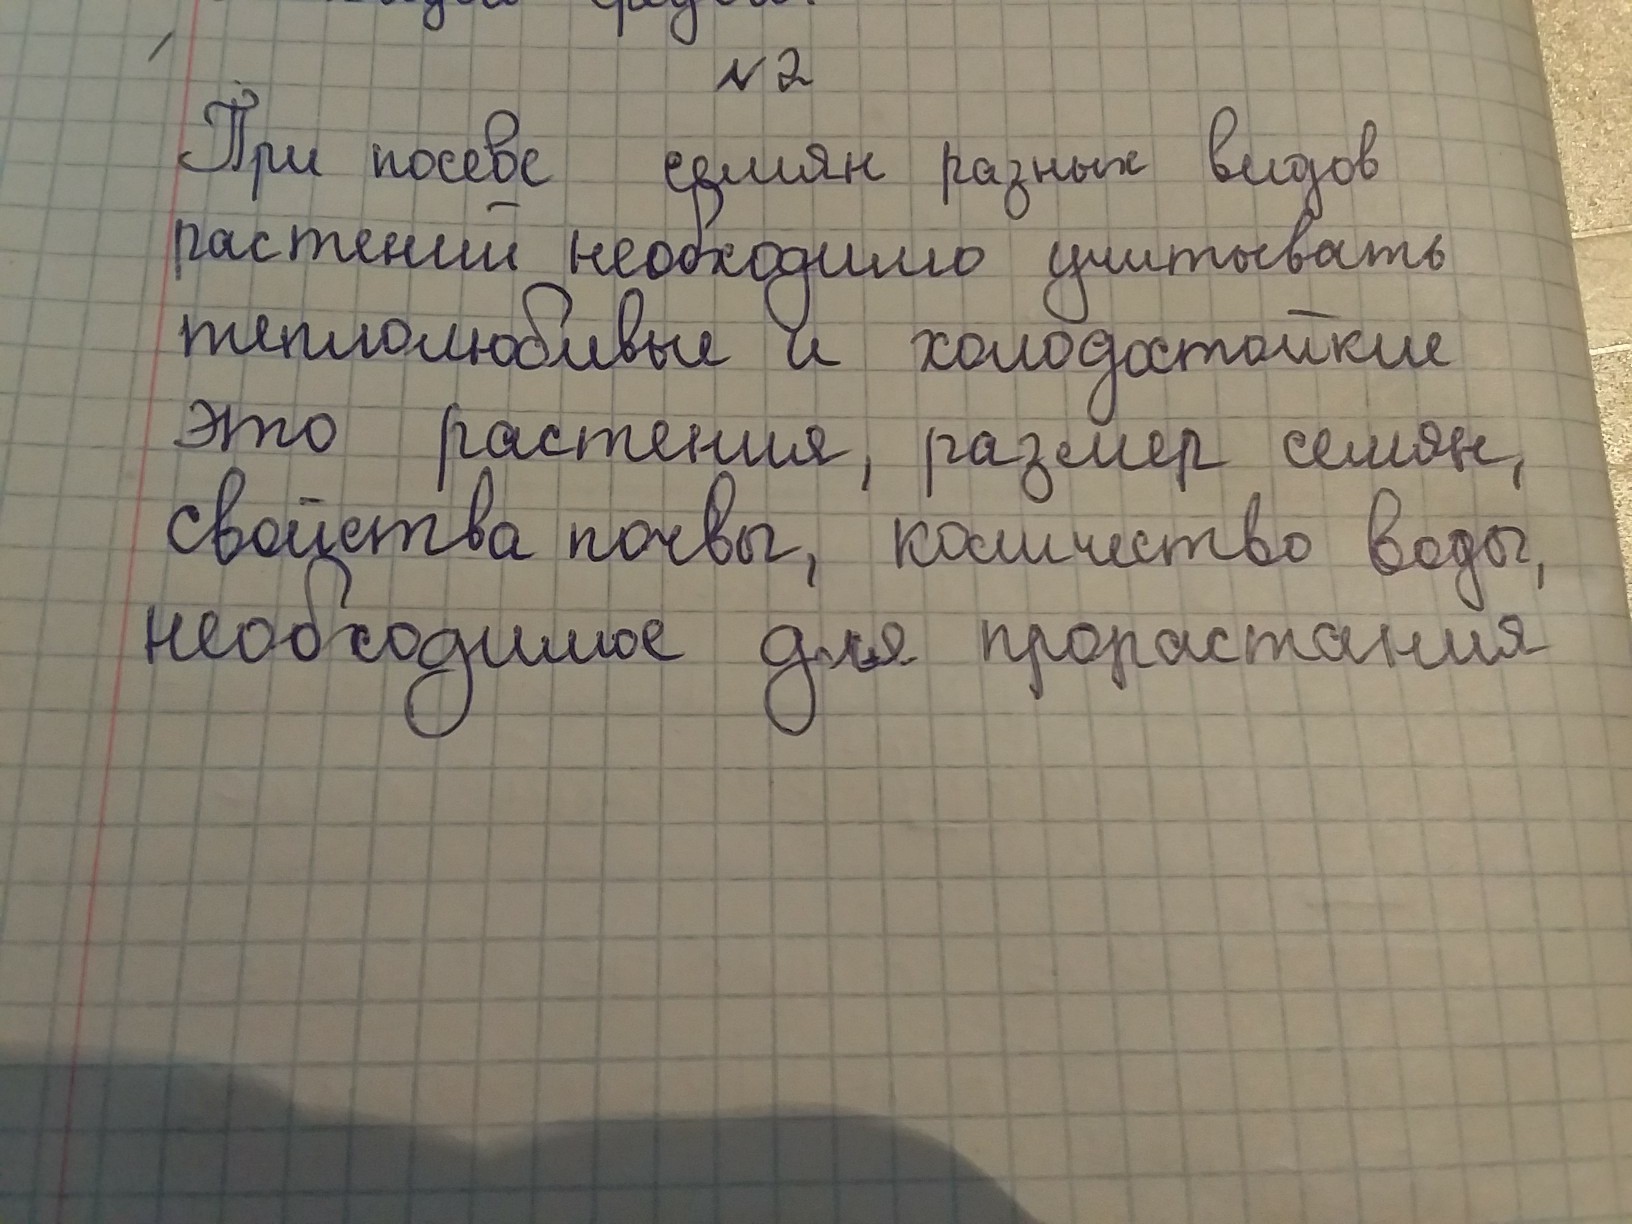 №2
При посеве семян разных видов
растений необходимо учитывать
теплолюбивые и холодостойкие
это растения, размер семян,
свойства почвы, количество воды,
необходимое для прорастания